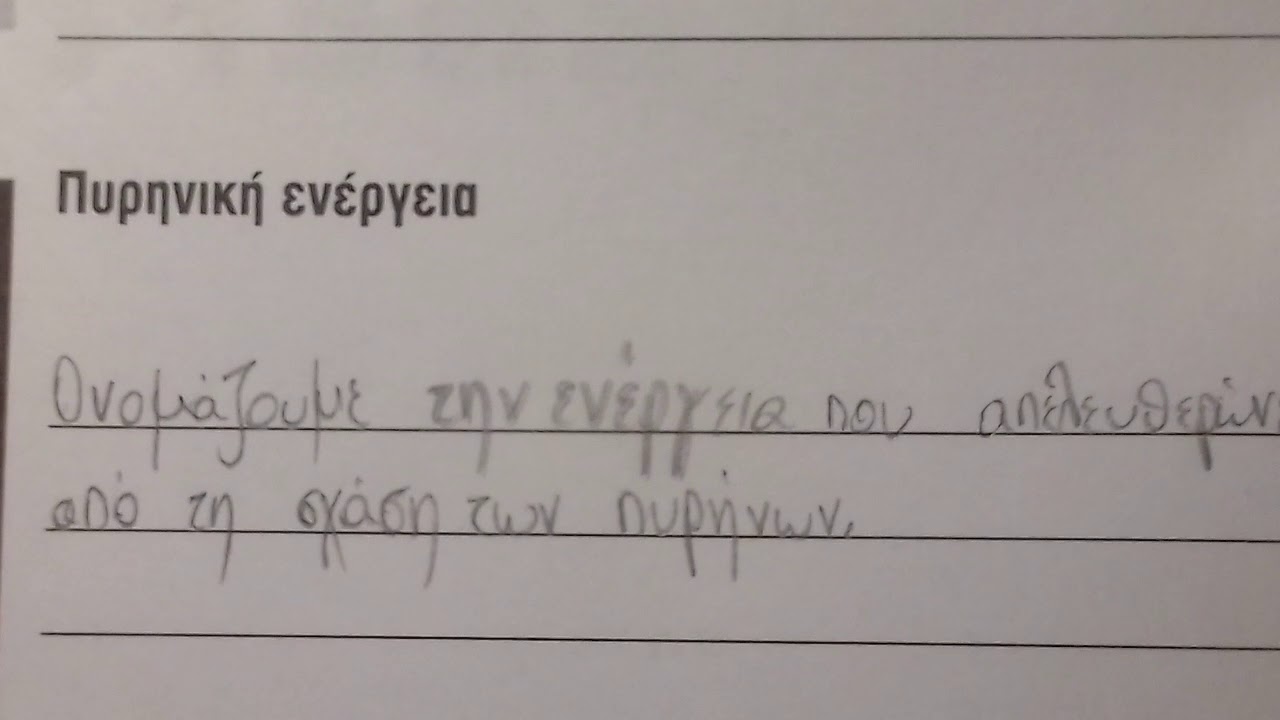 Πυρηνική ενέργεια
Ονομάζουμε την ενέργεια που απελευθερών
από τη σχάση των πυρήνων.